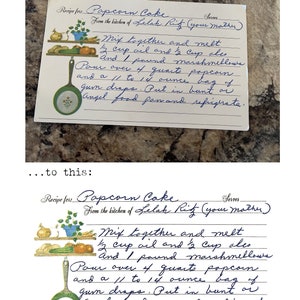 Recipe for: Popcorn Cake Serves
From the kitchen of Lilah Ritz (your mother)
Mix together and melt
½ cup oil and ½ cup oleo
and 1 pound marshmellows
Pour over 4 quarts popcorn
and a 11 to 14 ounce bag of
gum drops. Put in bunt or
angel food pan and refrigrate.
...to this:
Recipe for: Popcorn Cake Serves
From the kitchen of Lilah Ritz (your mother)
Mix together and melt
½ cup oil and ½ cup oleo
and 1 pound marshmellows
Pour over 4 quarts popcorn
and a 11 to 14 ounce bag of
gum drops. Put in bunt or